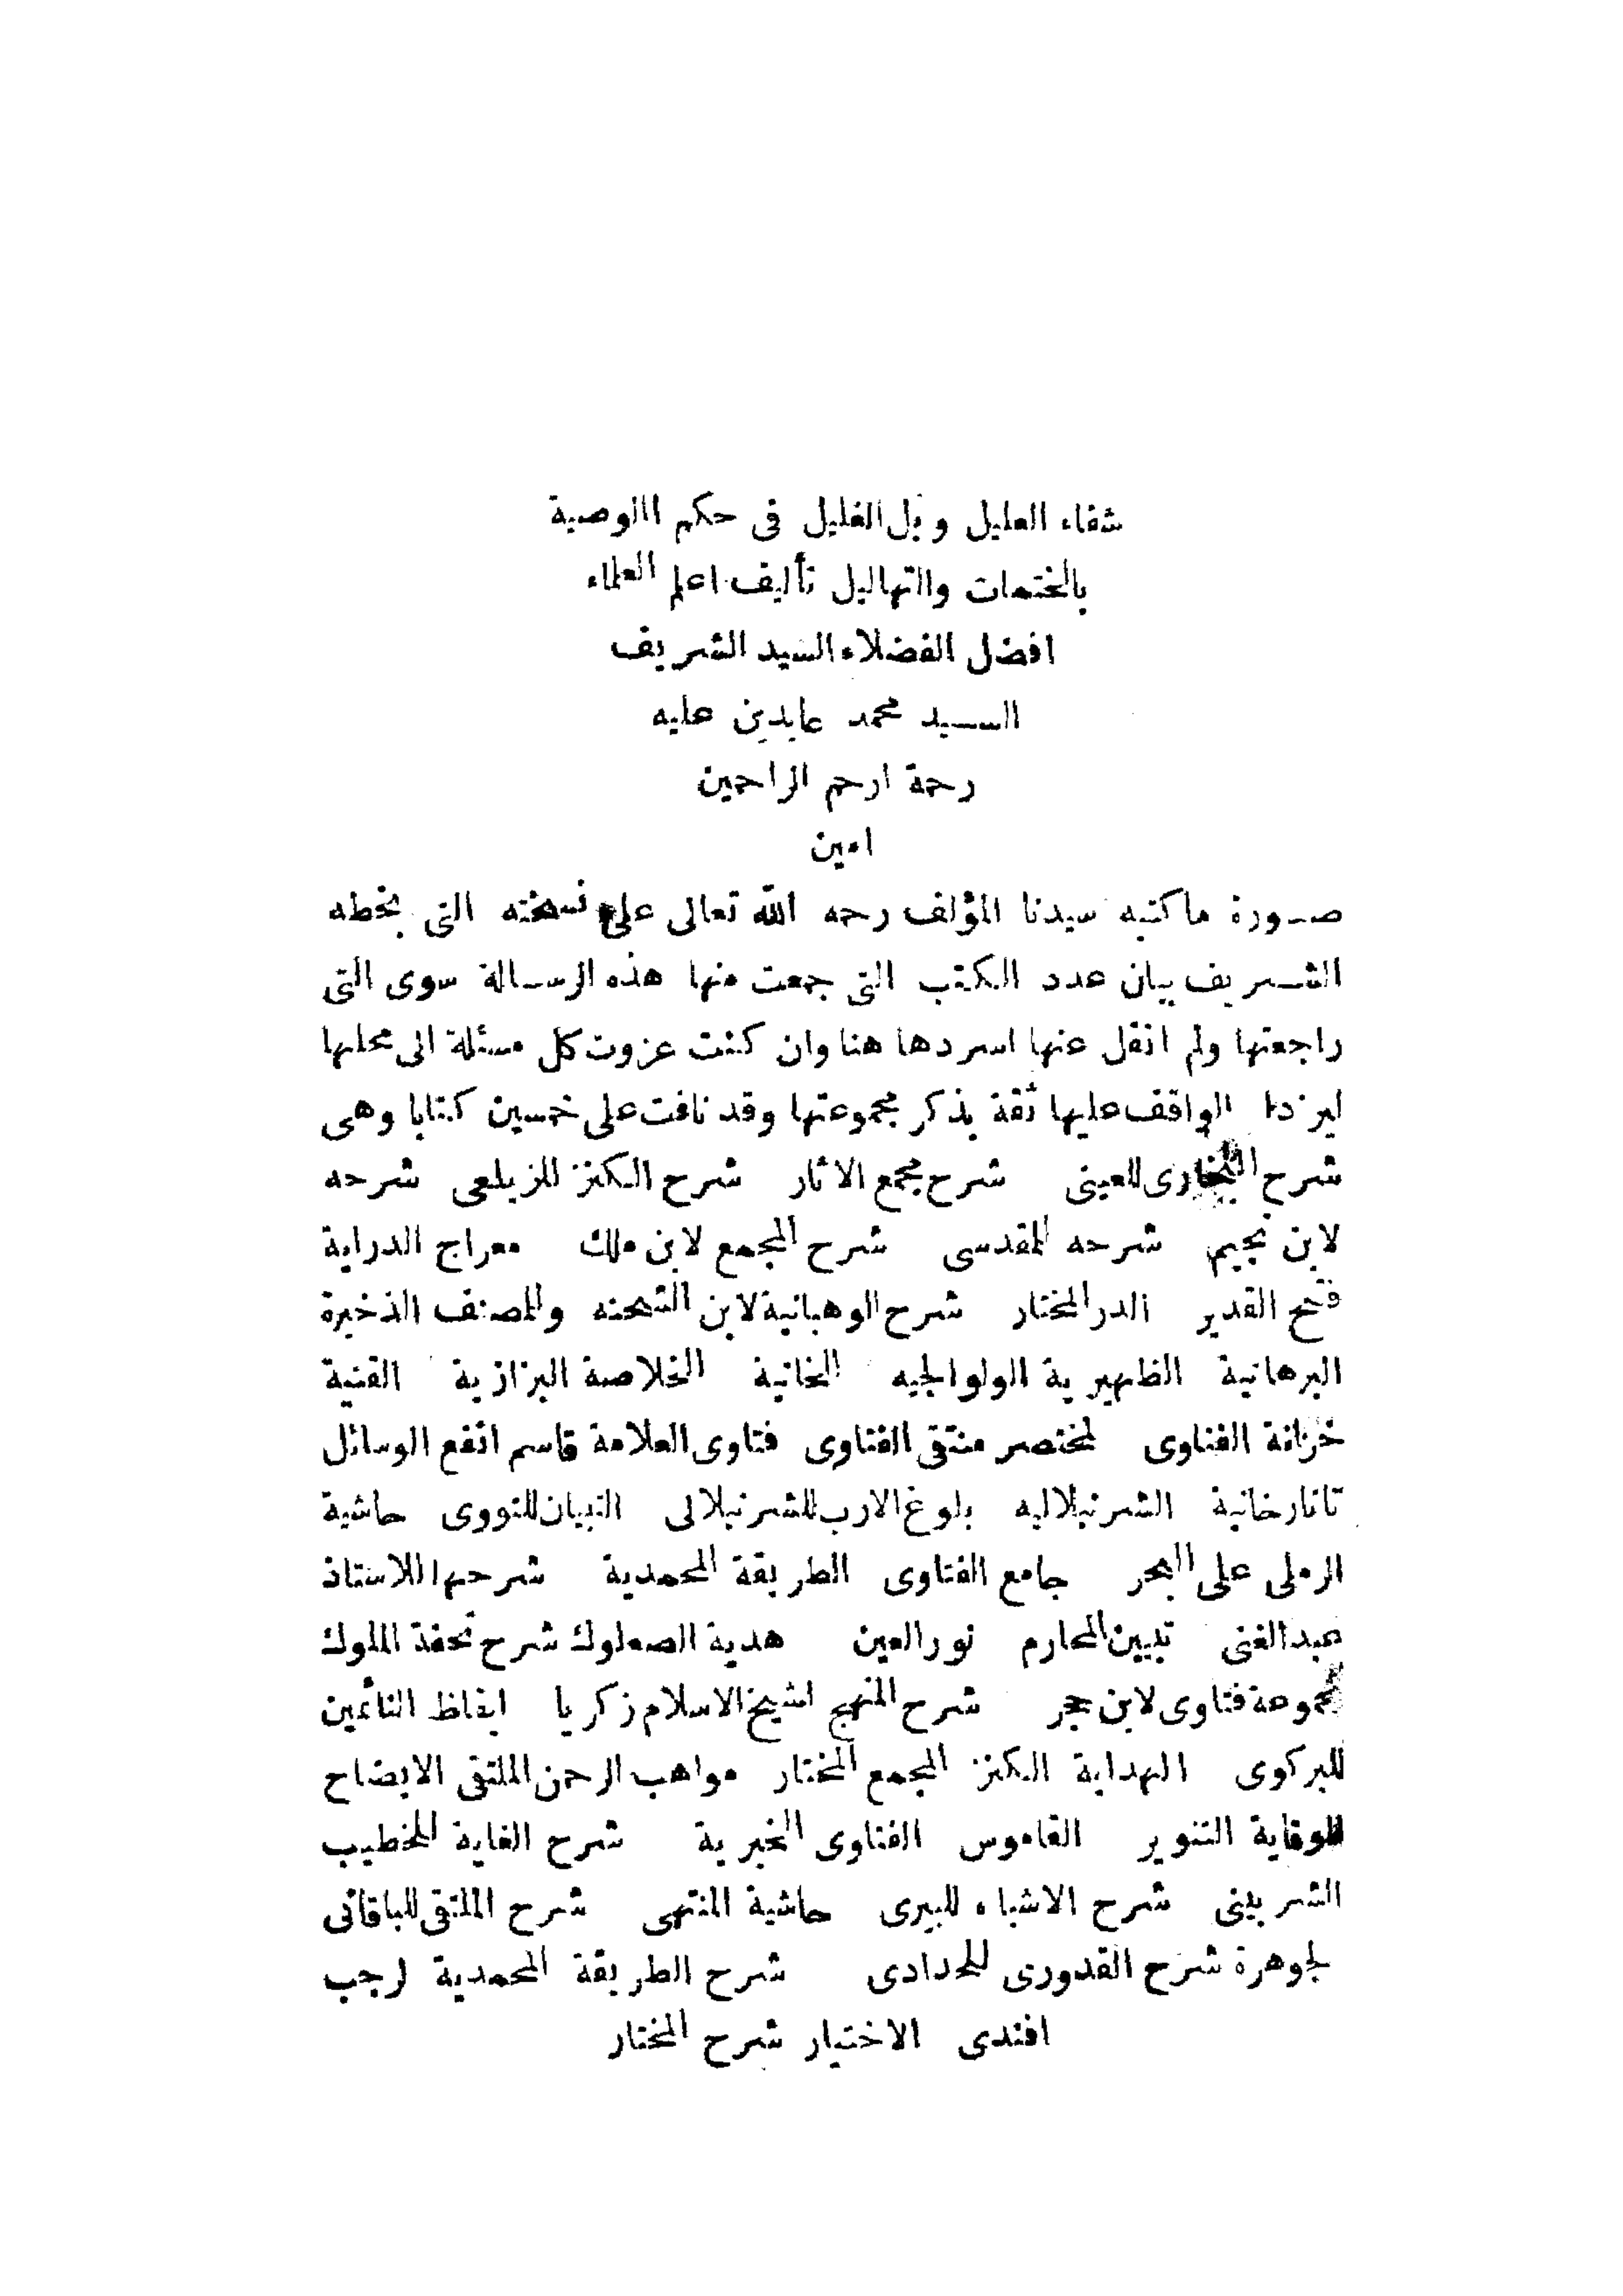 شفاء العليل وبل الغليل فى حكم الوصية
بالختمات والتهاليل تأليف اعلم العلماء
افضل الفضلاء السيد الشريف
السيد محمد عابدين عليه
رحمة ارحم الراحمين
امين
صورة ماكتبه سيدنا المؤلف رحمه الله تعالى على نسخته التى بخطه
الشريف بيان عدد الكتب التى جمعت منها هذه الرسالة سوى التى
راجعتها ولم انقل عنها اسردها هنا وان كنت عزوت كل مسئلة الى محلها
ليزداد الواقف عليها ثقة بذكر مجموعتها وقد نافت على خمسين كتابا وهى
شرح البخارى للعينى شرح مجمع الاثار شرح الكنز للزيلعى شرحه
لابن نجيم شرحه للمقدسى شرح المجمع لابن ملك معراج الدراية
فتح القدير الدر المختار شرح الوهبانية لابن الشحنه وللمصنف الذخيرة
البرهانية الظهيرية الولوالجيه الخانية الخلاصة البزازية القنية
خزانة الفتاوى لمختصر منتقى الفتاوى فتاوى العلامة قاسم انفع الوسائل
تاتارخانية الشرنبلاليه بلوغ الارب للشرنبلالى التبيان للنووى حاشية
الرملى على البحر جامع الفتاوى الطريقة المحمدية شرحها للاستاذ
عبد الغنى تبيين المحارم نور العين هدية الصعلوك شرح تحفة الملوك
مجموعة فتاوى لابن حجر شرح المنهج لشيخ الاسلام زكريا ايقاظ النائمين
للبركوى الهداية الكنز المجمع المختار مواهب الرحمن الملتقى الايضاح
للوقاية التنوير القاموس الفتاوى الخيرية شرح الغاية للخطيب
الشربينى شرح الاشباه للبيرى حاشية المنتهى شرح الملتقى للباقانى
لجوهرة شرح القدورى للحدادى شرح الطريقة المحمدية لرجب
افندى الاختيار شرح المختار